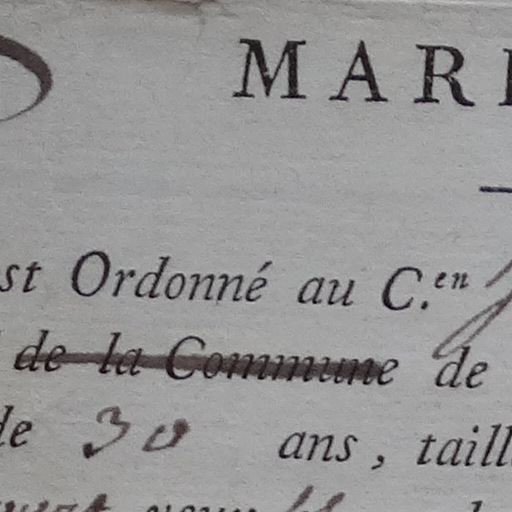 MARI
st Ordonné au C.en
de la Commune de
de 30 ans, taill